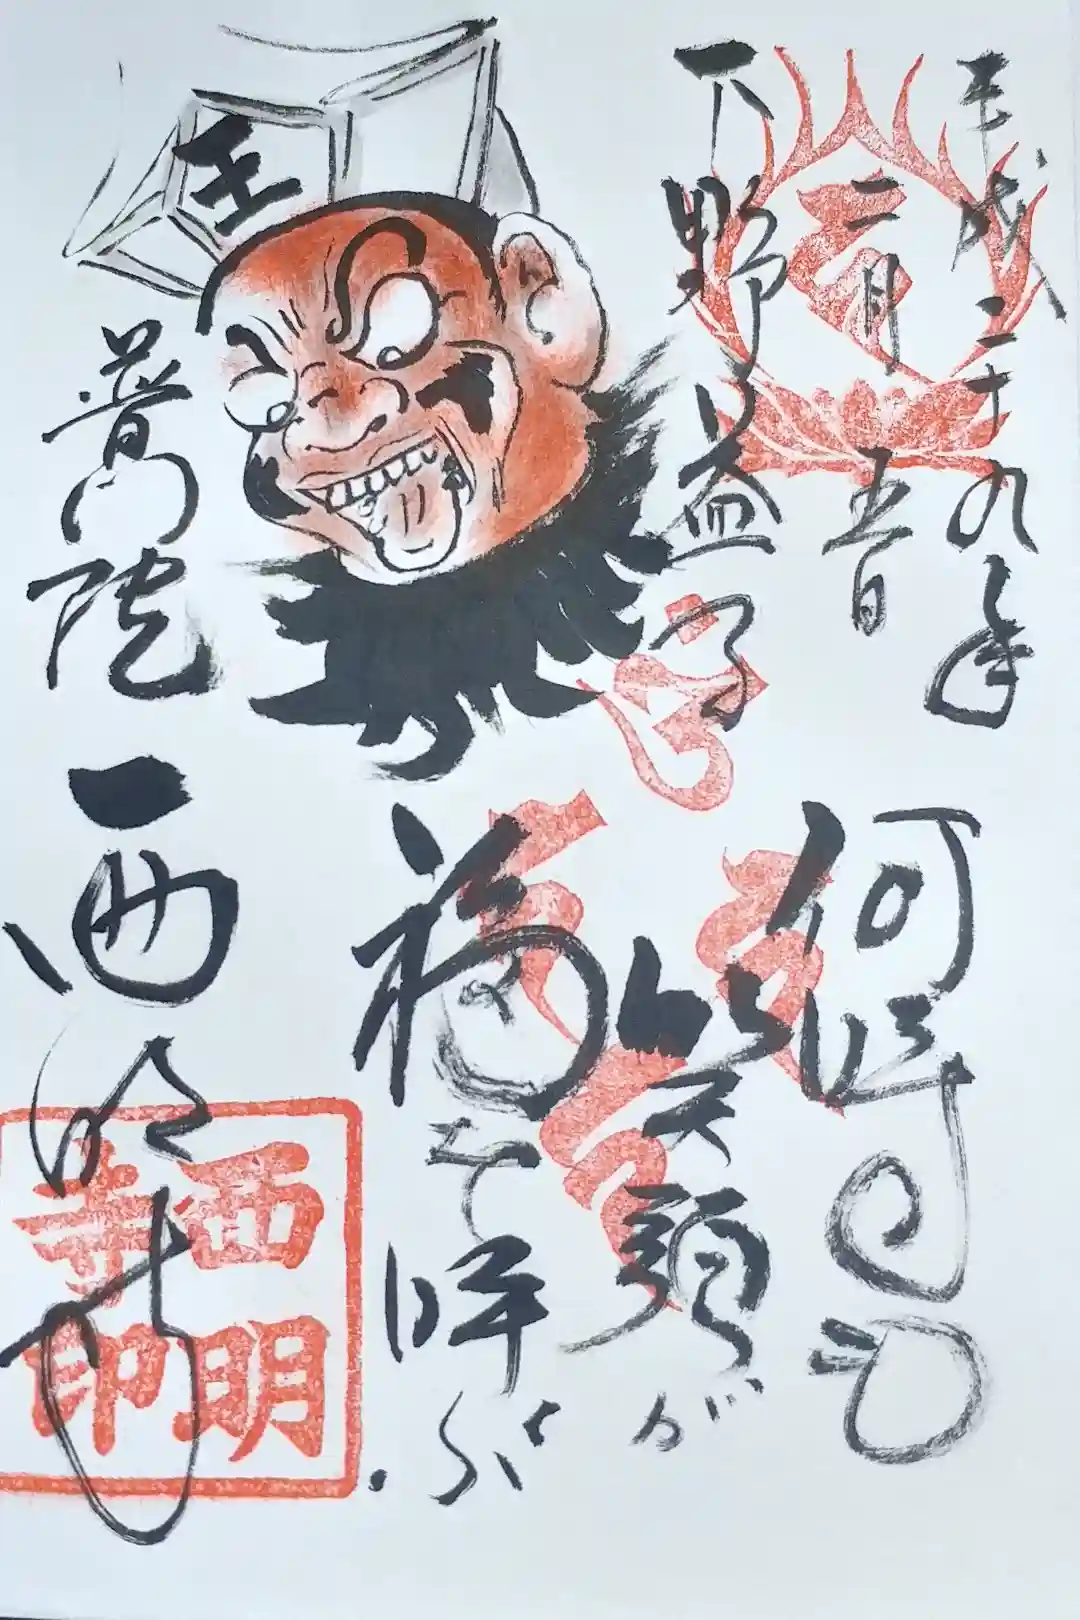 平成二十九年
二月五日
下野益子
王
何時も
笑顔が
福を呼ぶ.
普門院
西明寺
西明
寺印